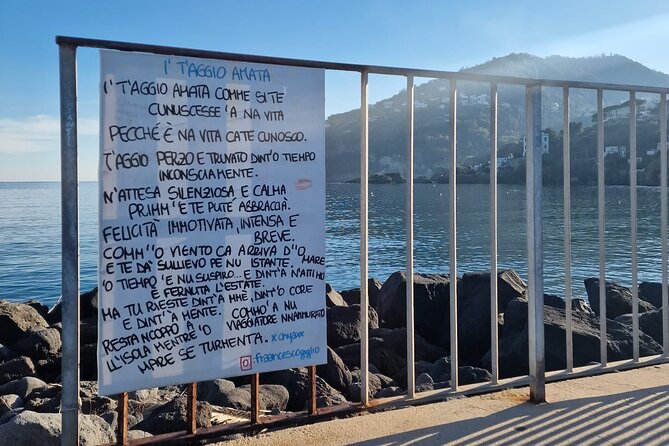 I' T'AGGIO AMATA
I' T'AGGIO AMATA COMME SI TE
CUNUSCESSE 'A NA VITA
PECCHÉ È NA VITA CA TE CUNOSCO.
T'AGGIO PERZO E TRUVATO DINT'O TIEMPO
INCONSCIAMENTE.
N'ATTESA SILENZIOSA E CALMA
PRIMM''E TE PUTÉ ABBRACCIÀ.
FELICITÀ IMMOTIVATA, INTENSA E
BREVE.
COMM''O VIENTO CA ARRIVA D''O MARE
E TE DÀ SULLIEVO PE NU ISTANTE.
'O TIEMPO 'E NU SUSPIRO... E DINT'A N'ATTIMO
È FERNUTA L'ESTATE.
MA TU RIESTE DINT'A MME, DINT'O CORE
E DINT'A MENTE. COMM'A NU
RESTA NCOPP'A VIAGGIATORE NNAMMURATO
LL'ISOLA MENTRE 'O
MARE SE TURMENTA. X chyaxx
: francescogiglio